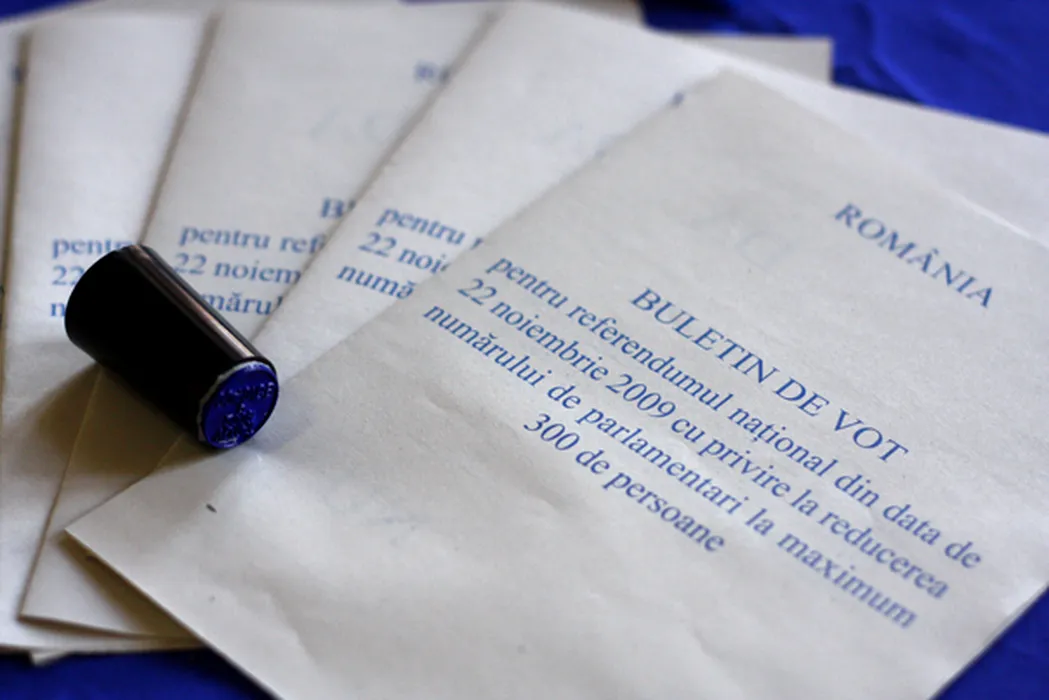 ROMÂNIA
BULETIN DE VOT
pentru referendumul național din data de
22 noiembrie 2009 cu privire la reducerea
numărului de parlamentari la maximum
300 de persoane
pentru
22 noi
numă
pentru ref
22 noiem
mărul
pentru
22